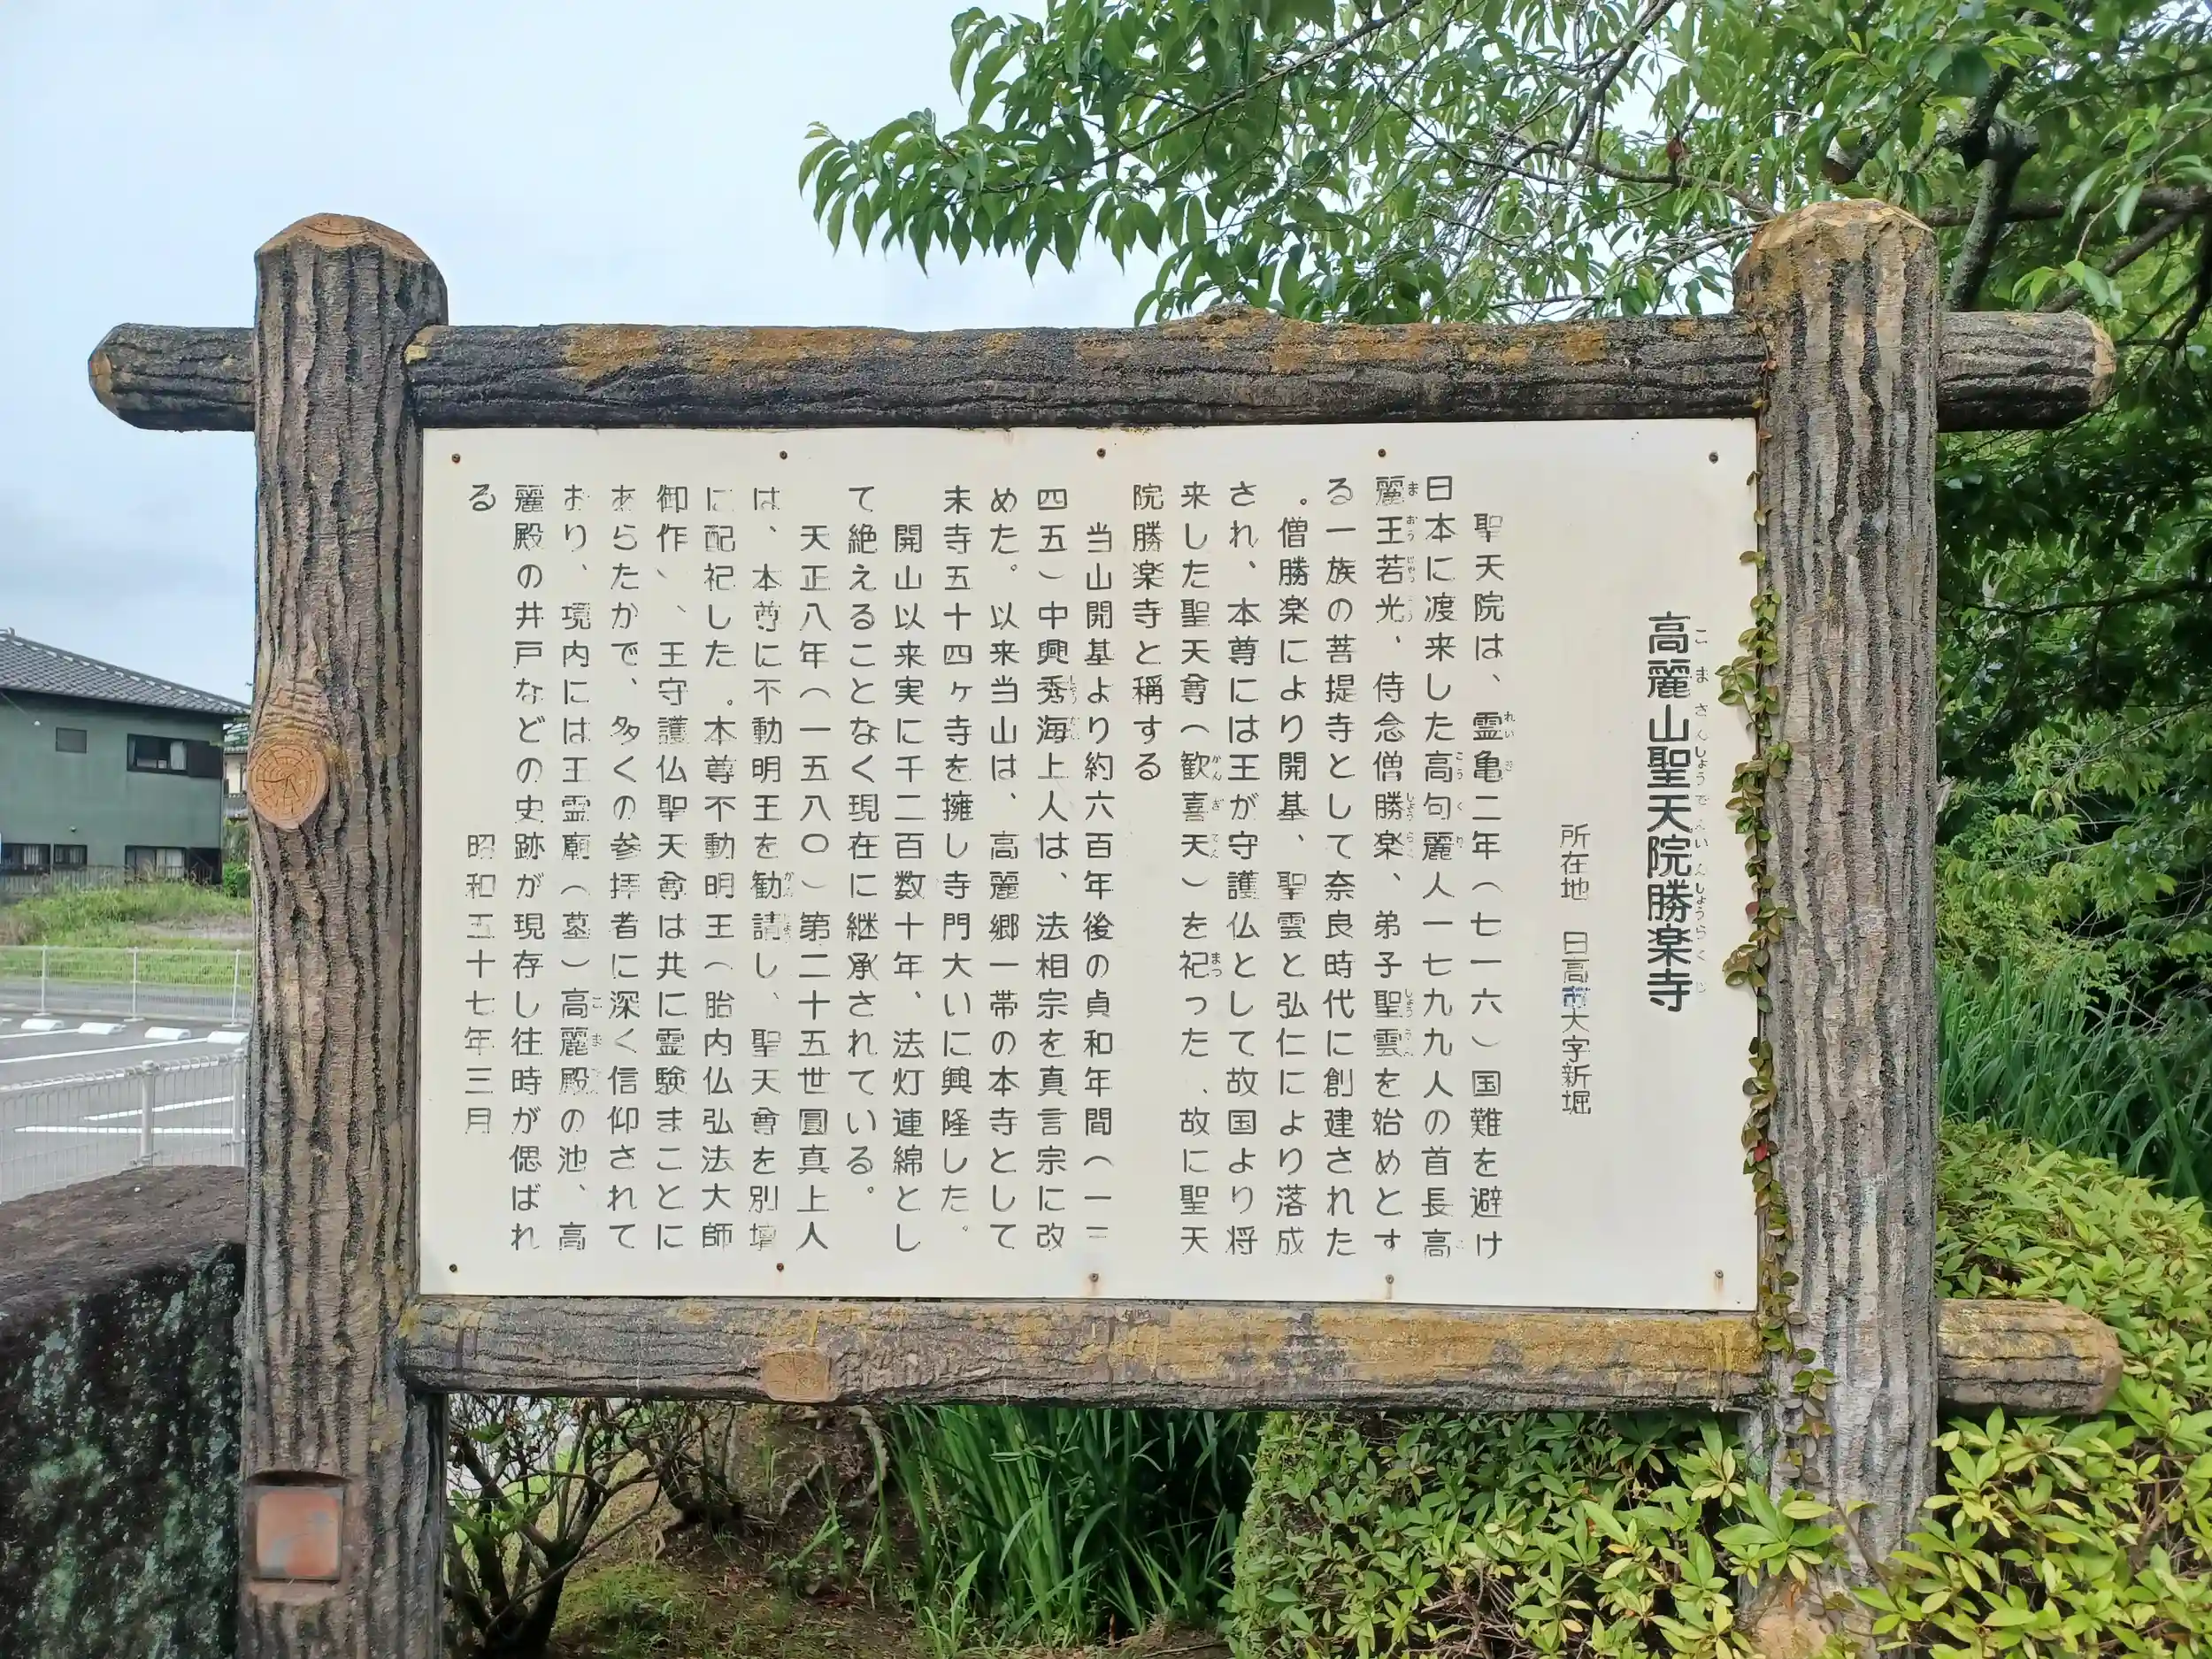 高麗山聖天院勝楽寺
こまさんしょうでんいんしょうらくじ
所在地 日高市大字新堀
聖天院は、霊亀二年(七一六)国難を避け
日本に渡来した高句麗人一七九九人の首長高
麗王若光、侍念僧勝楽、弟子聖雲を始めとす
る一族の菩提寺として奈良時代に創建された
。僧勝楽により開基、聖雲と弘仁により落成
され、本尊には王が守護仏として故国より将
来した聖天尊(歓喜天)を祀った、故に聖天
院勝楽寺と稱する
当山開基より約六百年後の貞和年間(一三
四五)中興秀海上人は、法相宗を真言宗に改
めた。以来当山は、高麗郷一帯の本寺として
末寺五十四ヶ寺を擁し寺門大いに興隆した。
開山以来実に千二百数十年、法灯連綿とし
て絶えることなく現在に継承されている。
天正八年(一五八〇)第二十五世圓真上人
は、本尊に不動明王を勧請し、聖天尊を別壇
に配祀した。本尊不動明王(胎内仏弘法大師
御作)、王守護仏聖天尊は共に霊験まことに
あらたかで、多くの参拝者に深く信仰されて
おり、境内には王霊廟(墓)高麗殿の池、高
麗殿の井戸などの史跡が現存し往時が偲ばれ
る
昭和五十七年三月